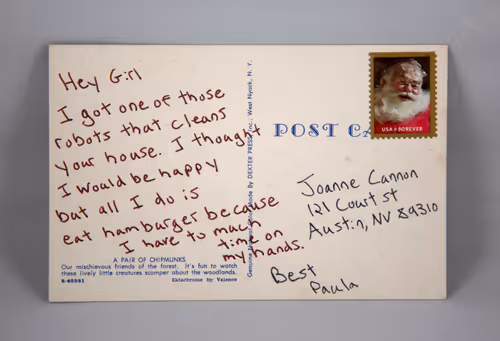 Hey Girl
I got one of those
robots that cleans
your house. I thought
I would be happy
but all I do is
eat hamburger because
I have to much
time on
my hands.
A PAIR OF CHIPMUNKS
Our mischievous friends of the forest. It's fun to watch
these lively little creatures scamper about the woodlands.
Ektachrome by Valence
Made By DEXTER PRESS, Inc., West Nyack, N. Y.
POST CA
USA FOREVER
Joanne Cannon
121 Court st
Austin, NV 89310
Best
Paula